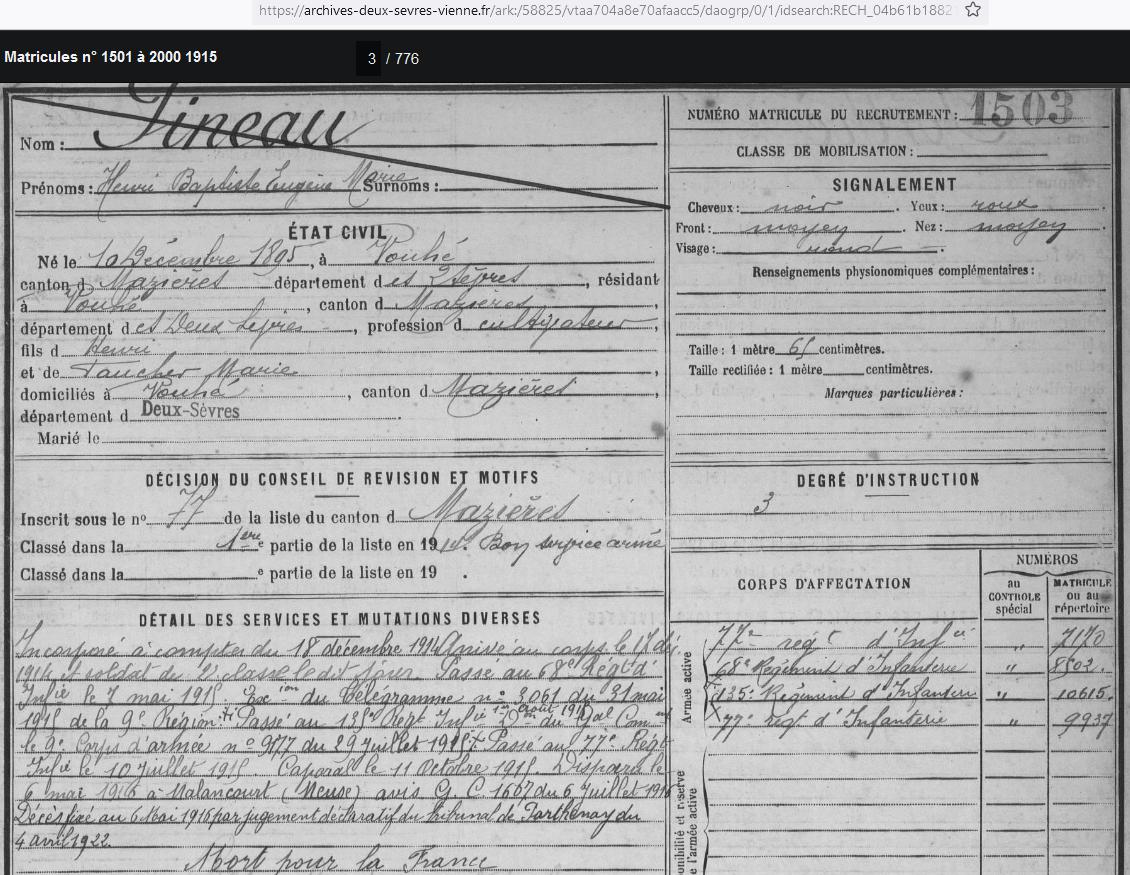 https://archives-deux-sevres-vienne.fr/ark:/58825/vtaa704a8e70afaacc5/daogrp/0/1/idsearch:RECH_04b61b1882
Matricules n° 1501 à 2000 1915
3 / 776
Nom : Pineau
Prénoms : Henri Baptiste Eugène Marie Surnoms :
ÉTAT CIVIL
Né le 10 Décembre 1895, à Vouhé
canton d Mazières département des 2 Sèvres, résidant
à Vouhé, canton d Mazières,
département des Deux Sèvres, profession d cultivateur,
fils d Henri
et de Faucher Marie,
domiciliés à Vouhé, canton d Mazières
département d Deux-Sèvres.
Marié le
DÉCISION DU CONSEIL DE REVISION ET MOTIFS
Inscrit sous le no 77 de la liste du canton d Mazières
Classé dans la 1ère e partie de la liste en 1914. Bon service armé
Classé dans la e partie de la liste en 19 .
DÉTAIL DES SERVICES ET MUTATIONS DIVERSES
Incorporé à compter du 18 décembre 1914 Arrivé au corps le 17 dé.
1914 et soldat de 2e classe le dit jour. Passé au 68e Régt d'
Infie le 7 mai 1915 Exon du Télégramme no 3061 du 31 mai
1915 de la 9e Région. Passé au 135e Régt Infie 1er août 1915 Don du Gal Comt
le 9e Corps d'armée no 977 du 29 Juillet 1915 Passé au 77e Régt
Infie le 10 juillet 1915. Caporal le 11 Octobre 1915. Disparu le
6 mai 1916 à Malancourt (Meuse) avis G. C. 1667 du 6 Juillet 1916
Décès fixé au 6 Mai 1916 par jugement déclaratif du tribunal de Parthenay du
4 avril 1922.
Mort pour la France
NUMÉRO MATRICULE DU RECRUTEMENT : 1503
CLASSE DE MOBILISATION :
SIGNALEMENT
Cheveux : noir. Yeux : roux.
Front : moyen. Nez : moyen
Visage : rond.
Renseignements physionomiques complémentaires :
Taille : 1 mètre 65 centimètres.
Taille rectifiée : 1 mètre centimètres.
Marques particulières :
DEGRÉ D'INSTRUCTION
3
CORPS D'AFFECTATION
NUMÉROS
au CONTROLE spécial
MATRICULE ou au répertoire
Armée active
77e régt d'Infie " 7170
68e Régiment d'Infanterie " 8502.
135e Régiment d'Infanterie " 10615.
77e régt d'Infanterie " 9937